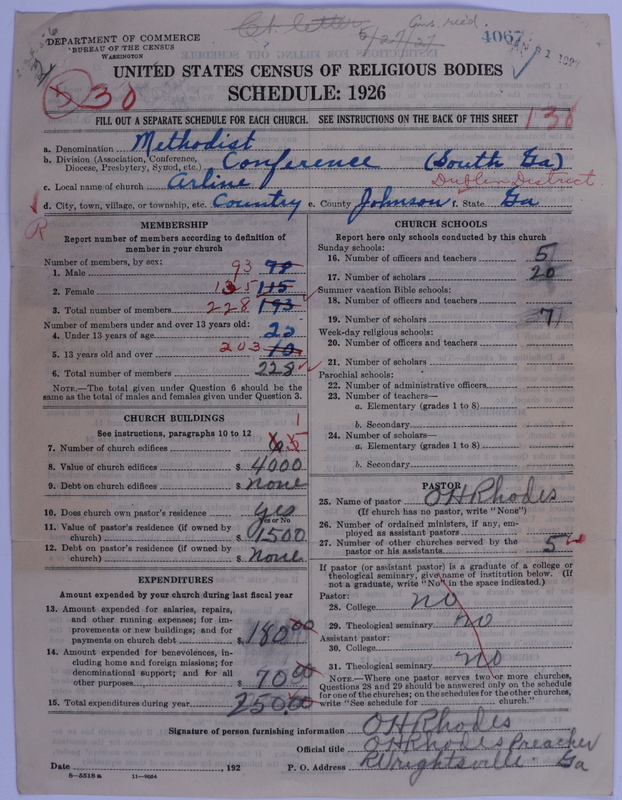 DEPARTMENT OF COMMERCE
BUREAU OF THE CENSUS
WASHINGTON
Ct. letter
5/27/27
Ans. recd.
4067
UNITED STATES CENSUS OF RELIGIOUS BODIES
SCHEDULE: 1926
530
FILL OUT A SEPARATE SCHEDULE FOR EACH CHURCH. SEE INSTRUCTIONS ON THE BACK OF THIS SHEET
130
a. Denomination Methodist
b. Division (Association, Conference, Diocese, Presbytery, Synod, etc.) Conference (South Ga)
Dublin District
c. Local name of church Arline
d. City, town, village, or township, etc. Country e. County Johnson f. State Ga
R
MEMBERSHIP
Report number of members according to definition of member in your church
Number of members, by sex:
1. Male 93 78
2. Female 135 115
3. Total number of members 228 193
Number of members under and over 13 years old:
4. Under 13 years of age 25
5. 13 years old and over 203 10
6. Total number of members 228
NOTE.—The total given under Question 6 should be the same as the total of males and females given under Question 3.
CHURCH BUILDINGS
See instructions, paragraphs 10 to 12
1
7. Number of church edifices
8. Value of church edifices $ 4000
9. Debt on church edifices $ None
10. Does church own pastor's residence yes
Yes or No
11. Value of pastor's residence (if owned by church) $ 1500
12. Debt on pastor's residence (if owned by church) $ None
EXPENDITURES
Amount expended by your church during last fiscal year
13. Amount expended for salaries, repairs, and other running expenses; for improvements or new buildings; and for payments on church debt $ 180.00
14. Amount expended for benevolences, including home and foreign missions; for denominational support; and for all other purposes $ 70.00
15. Total expenditures during year 250.00
CHURCH SCHOOLS
Report here only schools conducted by this church
Sunday schools:
16. Number of officers and teachers 5
17. Number of scholars 20
Summer vacation Bible schools:
18. Number of officers and teachers
19. Number of scholars 7
Week-day religious schools:
20. Number of officers and teachers
21. Number of scholars
Parochial schools:
22. Number of administrative officers
23. Number of teachers—
a. Elementary (grades 1 to 8)
b. Secondary
24. Number of scholars—
a. Elementary (grades 1 to 8)
b. Secondary
PASTOR
25. Name of pastor O H Rhodes
(If church has no pastor, write "None")
26. Number of ordained ministers, if any, employed as assistant pastors
27. Number of other churches served by the pastor or his assistants 5
If pastor (or assistant pastor) is a graduate of a college or theological seminary, give name of institution below. (If not a graduate, write "No" in the space indicated.)
Pastor:
28. College no
29. Theological seminary no
Assistant pastor:
30. College
31. Theological seminary no
NOTE.—Where one pastor serves two or more churches, Questions 28 and 29 should be answered only on the schedule for one of the churches; on the schedules for the other churches, write "See schedule for church."
Signature of person furnishing information O H Rhodes
Official title O H Rhodes Preacher
Date , 192 P. O. Address Wrightsville Ga
8—5518a 11—9054